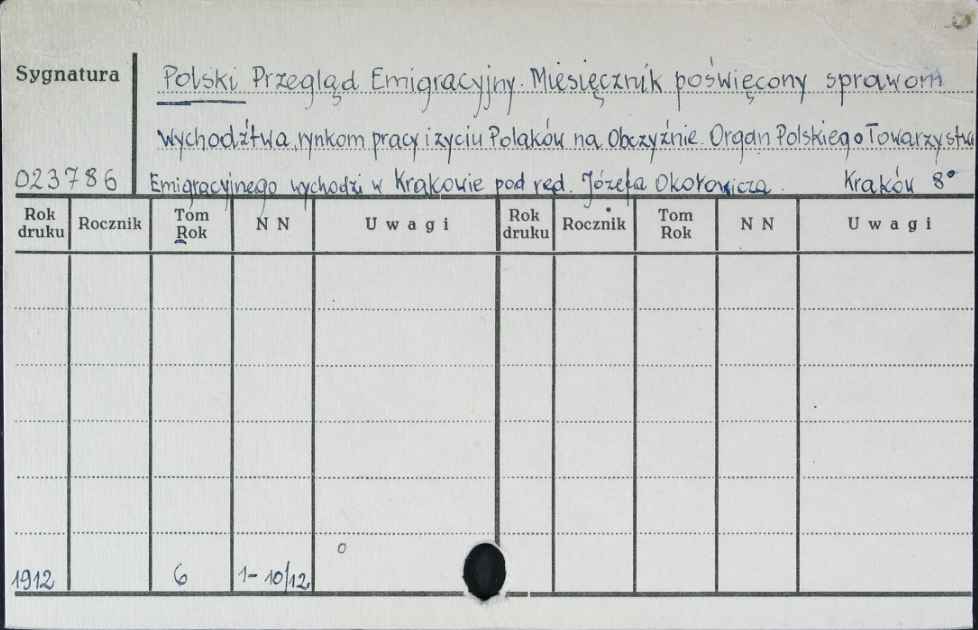 Sygnatura
Polski Przegląd Emigracyjny. Miesięcznik poświęcony sprawom
wychodźtwa, rynkom pracy i życiu Polaków na Obczyźnie. Organ Polskiego Towarzystwa
023786 Emigracyjnego wychodzi w Krakowie pod red. Józefa Okołowicza. Kraków 8°
Rok druku Rocznik Tom Rok N N Uwagi Rok druku Rocznik Tom Rok N N Uwagi
1912 6 1-10/12